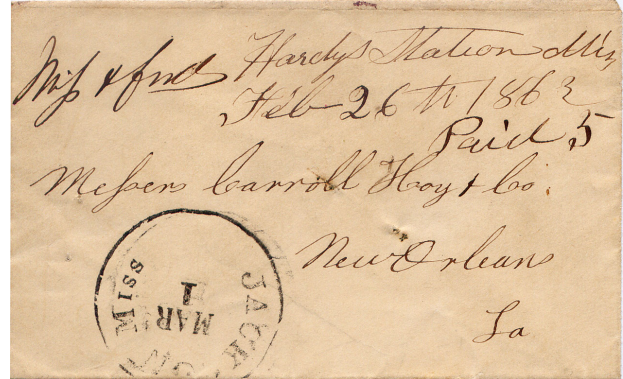 Hardys Station Mis
Miss & fwd
Feb 26th 1862
Paid 5
Messers Carroll Hoy & Co.
New Orleans
La
JACKSON Miss
MAR
1